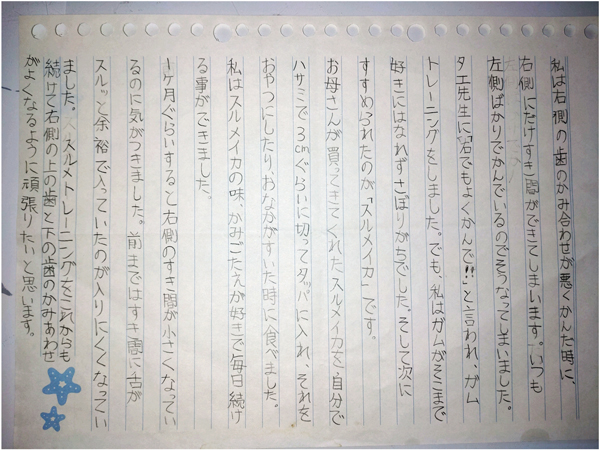 私は右側の歯のかみ合わせが悪くかんだ時に、
右側にだけすき間ができてしまいます。いつも
左側ばかりでかんでいるのでそうなってしまいました。
タエ先生に「右でもよくかんで!!」と言われ、ガム
トレーニングをしました。でも、私はガムがそこまで
好きにはなれずさぼりがちでした。そして次に
すすめられたのが「スルメイカ」です。
お母さんが買ってきてくれたスルメイカを、自分で
ハサミで3cmぐらいに切ってタッパに入れ、それを
おやつにしたり、おなかがすいた時に食べました。
私はスルメイカの味、かみごたえが好きで毎日続け
る事ができました。
1ヶ月ぐらいすると右側のすき間が小さくなってい
るのに気がつきました。前まではすき間に舌が
スルッと余裕で入っていたのが入りにくくなってい
ました。スルメトレーニングをこれからも
続けて右側の上の歯と下の歯のかみあわせ
がよくなるように頑張りたいと思います。